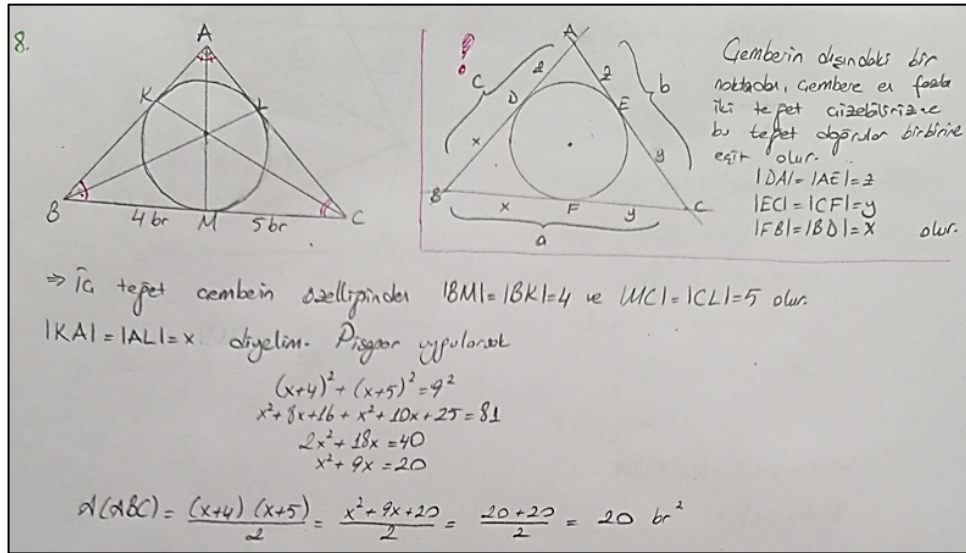 8.
A
K
L
B
M
C
4 br
5 br
!
A
c
2
2
b
D
E
x
y
B
x
F
y
C
a
Çemberin dışındaki bir
noktadan, çembere en fazla
iki teğet çizebiliriz ve
bu teğet doğrular birbirine
eşit olur.
|DA|=|AE|=2
|EC|=|CF|=y
|FB|=|BD|=x olur.
⇒ İç teğet çemberin özelliğinden |BM|=|BK|=4 ve |MC|=|CL|=5 olur.
|KA|=|AL|=x diyelim. Pisagor uygularsak
(x+4)²+(x+5)²=9²
x²+8x+16+x²+10x+25=81
2x²+18x=40
x²+9x=20
A(ABC)= (x+4)(x+5)/2 = x²+9x+20/2 = 20+20/2 = 20 br²